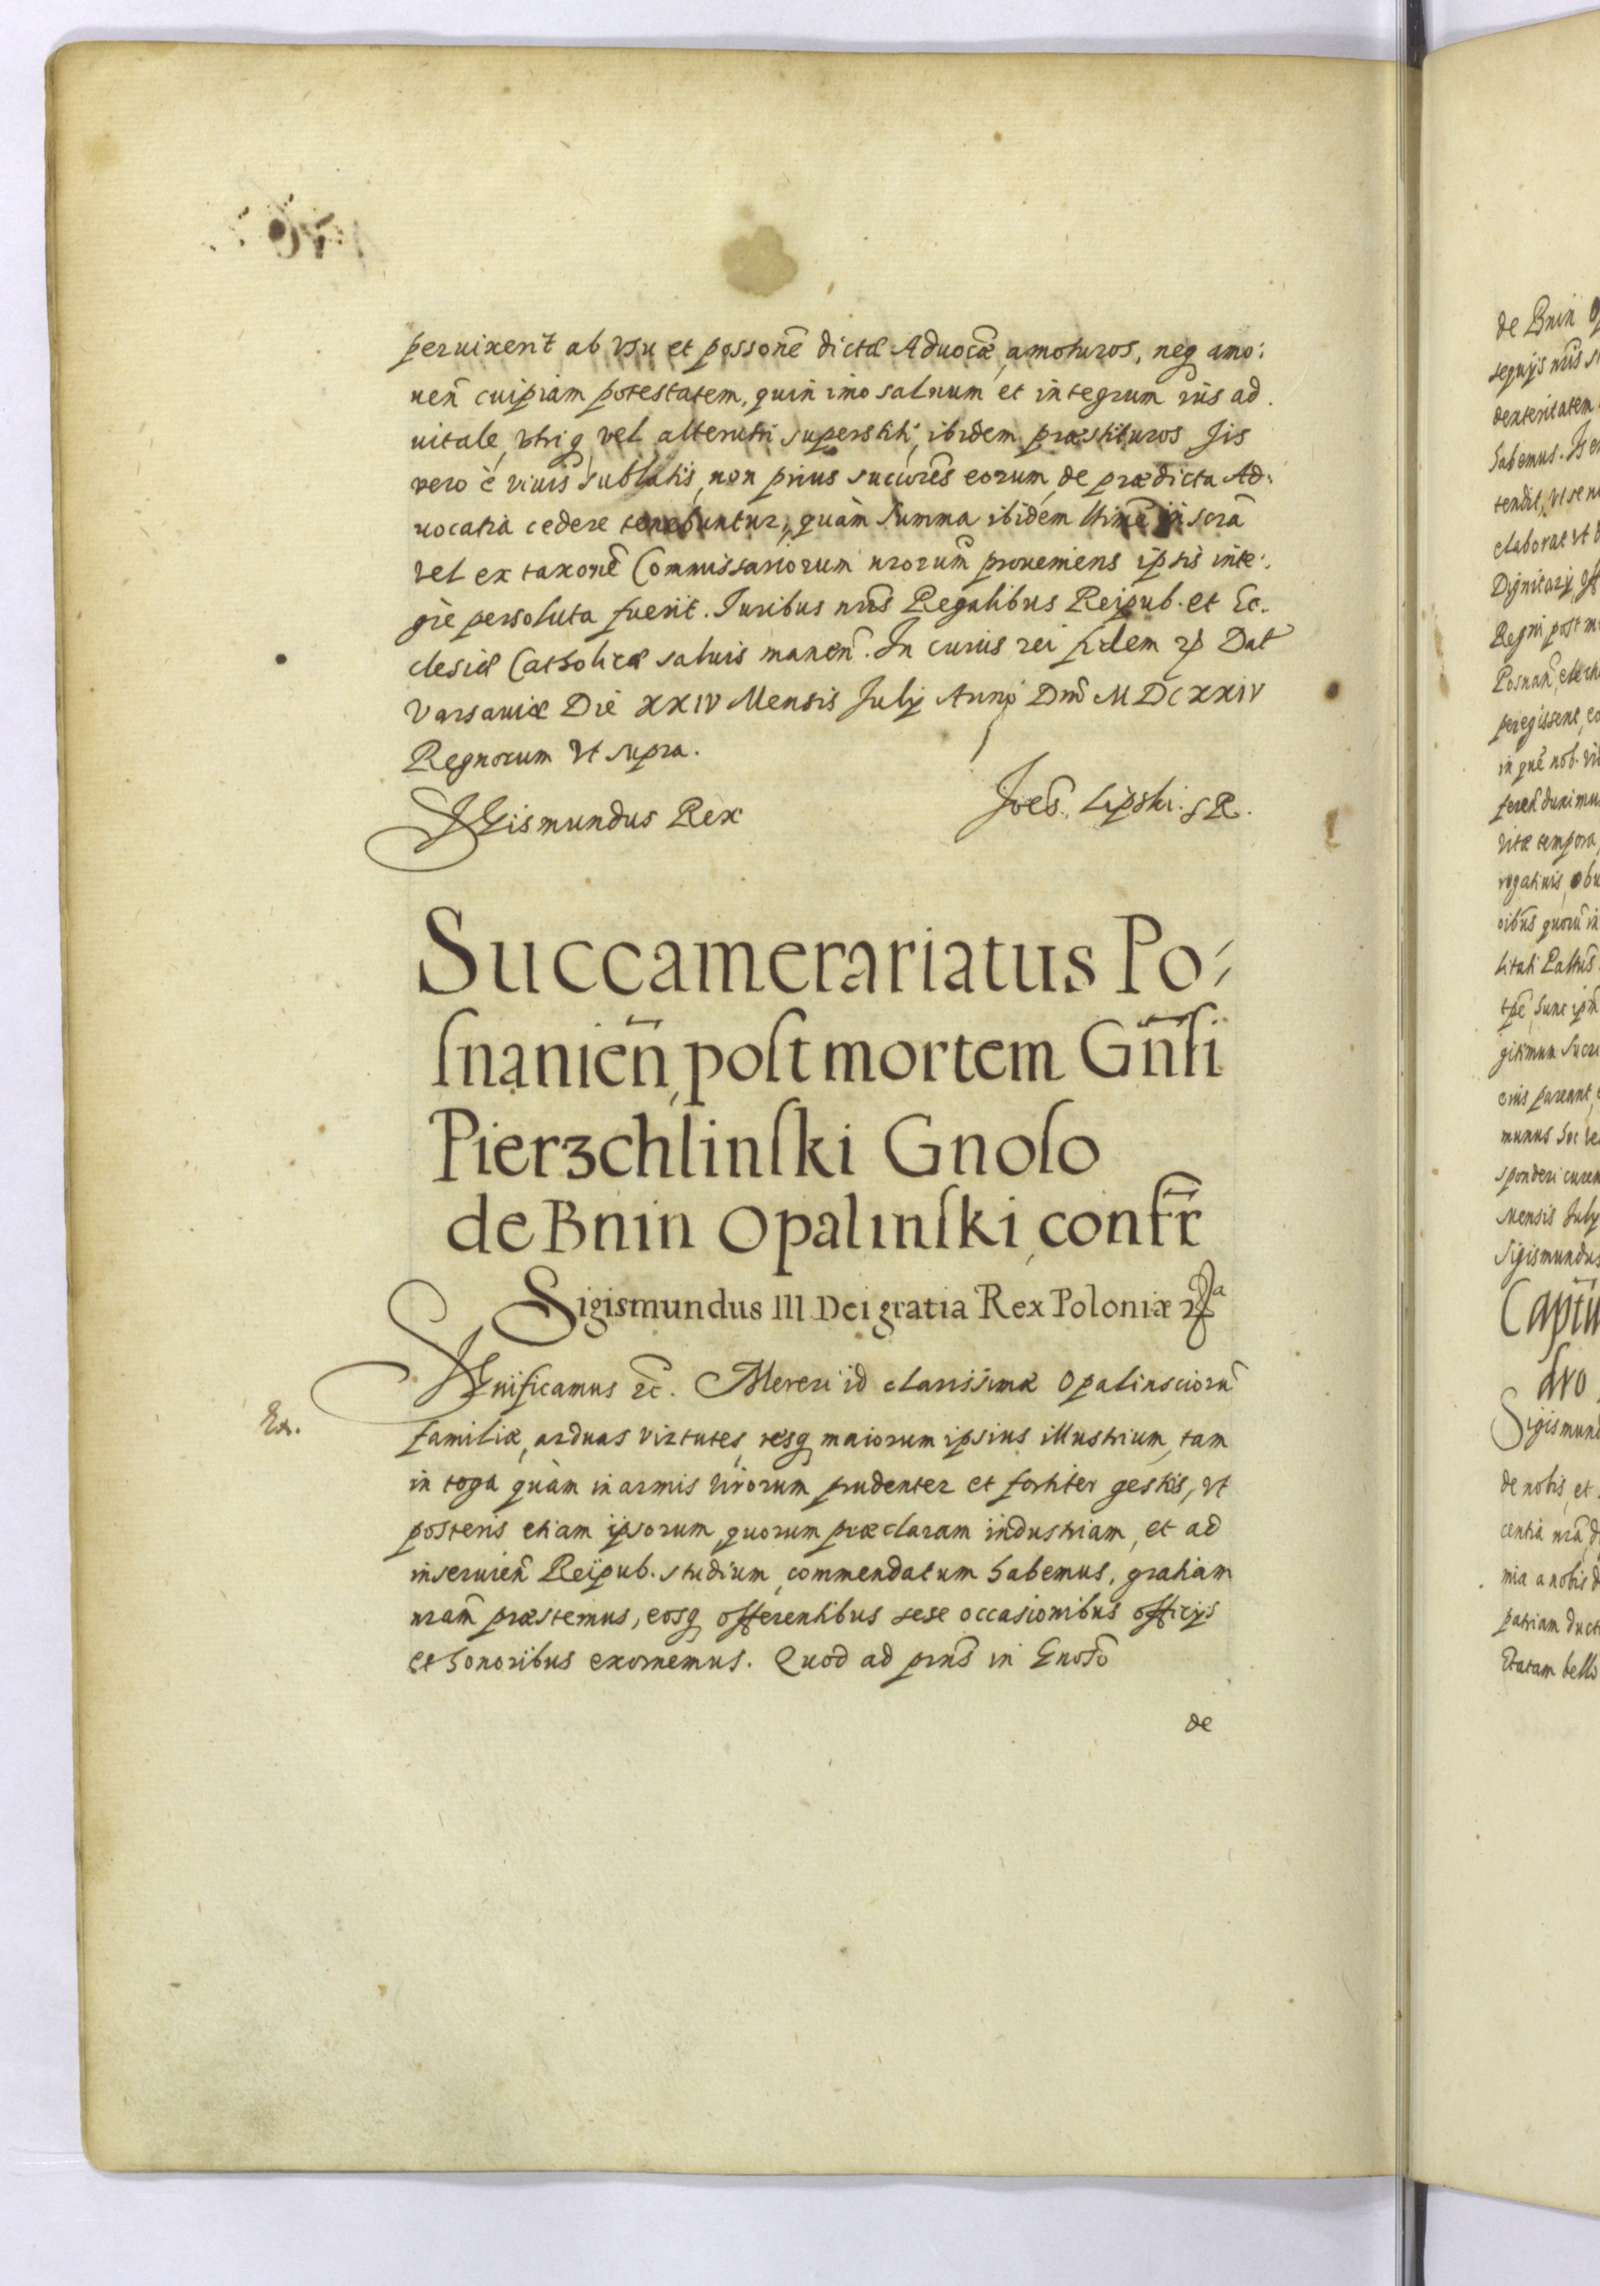 peruixerit ab vsu et possonẽ dictæ Aduocæ, amoturos, neq amo:
ueñ cuipiam potestatem, quin imo saluum et integrum ius ad
uitale, vtriq vel alterutri superstiti, ibidem præstituros Jis
vero è viuis sublatis, non prius succores eorum, de prædicta Ad:
uocatia cedere tenebuntur, quàm summa ibidem
vel ex taxonẽ Commissariorum nrorum proueniens ipsis inte:
gre persoluta fuerit. Juribus nris Regalibus Reipub. et Ec.
clesiæ Catholicæ saluis maneñ. In cuius rei fidem Dat
Varsauiæ Die XXIV Mensis July Anno Dni MDCXXIV
Regnorum vt supra.
Sigismundus Rex
Joes. Lipski. SR.
Succamerariatus Po⸗
ſnanieñ, poſt mortem Gñſi
Pierzchlinſki Gnoſo
de Bnin Opalinſki, confr̃
Sigismundus III Dei gratia Rex Poloniæ
Significamus &c. Mereri id clarissimæ Opalinsciorũ
Ex.
familiæ, arduas virtutes, resq maiorum ipsius illustrium, tam
in toga quàm in armis virorum prudenter et fortiter gestis, vt
posteris etiam ipsorum, quorum præclaram industriam, et ad
inseruieñ Reipub. studium, commendatum habemus, gratiam
nram præstemus, eosq offerentibus sese occasionibus officijs
et honoribus exornemus. Quod ad prns in Gnoso
de
de Bnin
dexteritatem
habemus.
elaborat vt
Regni post
vitæ tempora
eius pareant
munus hoc
Mensis July
Sigismundus
Sigismun
de nobis, et
mia a nobis
patriam